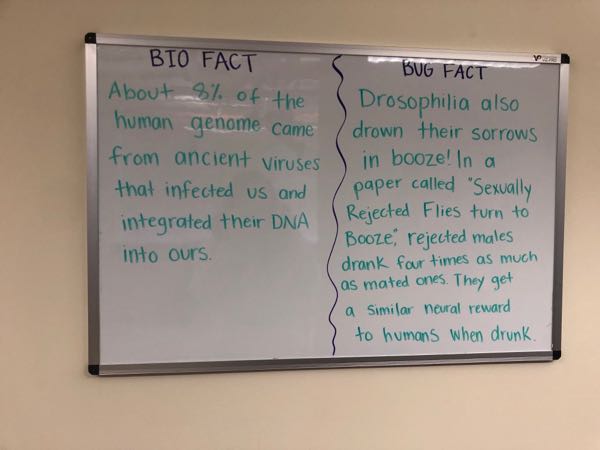 BIO FACT
About 8% of the
human genome came
from ancient viruses
that infected us and
integrated their DNA
into ours.
BUG FACT
Drosophilia also
drown their sorrows
in booze! In a
paper called "Sexually
Rejected Flies turn to
Booze", rejected males
drank four times as much
as mated ones. They get
a similar neural reward
to humans when drunk.